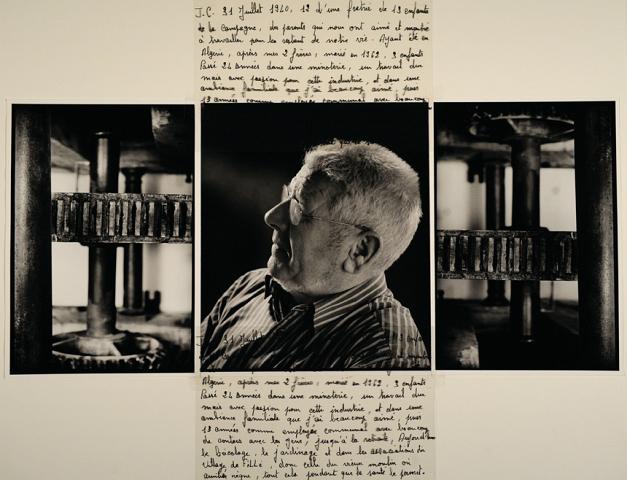 J.C. 31 Juillet 1940, 12 d'une fratrie de 13 enfants
de la Campagne, des parents qui nous ont aimé et montré
à travailler pour le restant de notre vie. Ayant été en
Algérie, après mes 2 frères, marié en 1962, 3 enfants
Passé 24 années dans une minoterie, un travail dur
mais avec passion pour cette industrie, et dans une
ambiance familiale que j'ai beaucoup aimé, puis
13 années comme employé communal avec beaucoup
J.C. 31 Juillet
Algérie, après mes 2 frères, marié en 1962, 3 enfants
Passé 24 années dans une minoterie, un travail dur
mais avec passion pour cette industrie, et dans une
ambiance familiale que j'ai beaucoup aimé, puis
13 années comme employé communal avec beaucoup
de contacts avec les gens, jusqu'à la retraite, Aujourd'hui
le bricolage, le jardinage et dans les associations du
Village de Fillé, donc celle du vieux moulin où
amitié règne, tout cela pendant que la santé le permet.